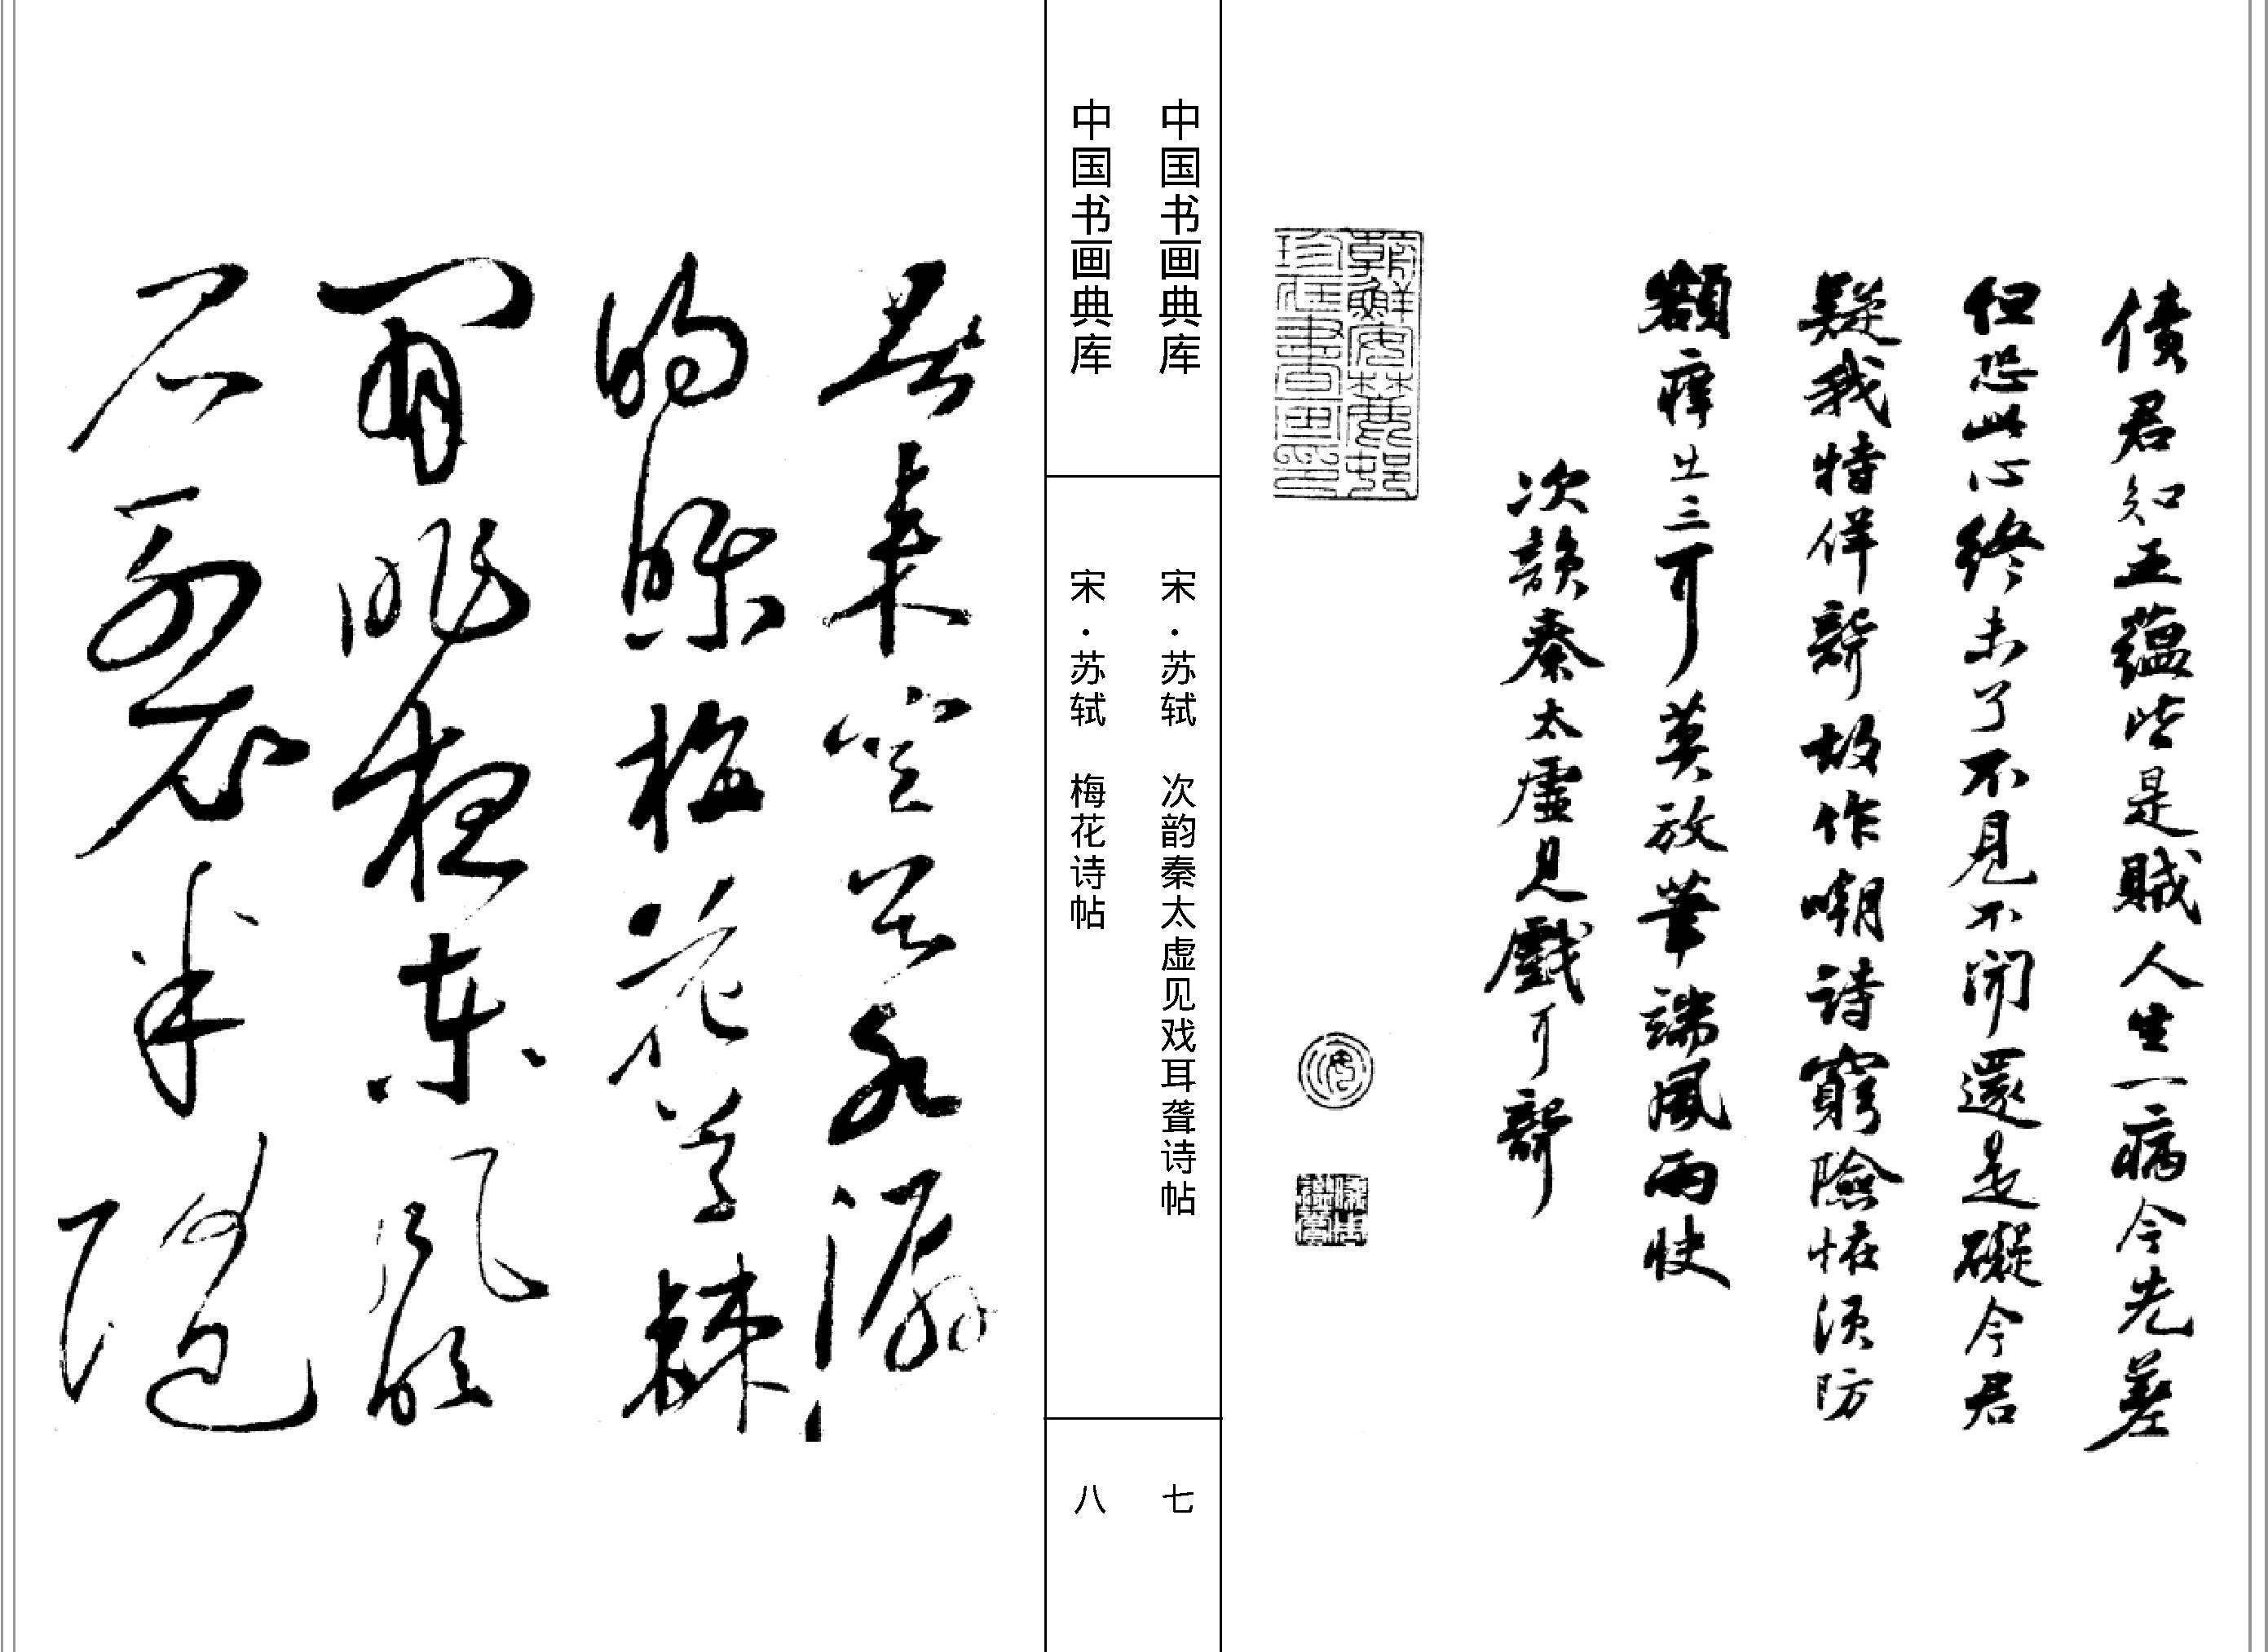 債君知五蘊皆是賊人生一病今先差
但恐此心終未了不見不聞還是礙今君
疑我特佯聾故作嘲詩窮險怪須防
額癢出三耳莫放筆端風雨快
次韻秦太虛見戲耳聾
朝鮮安麓邨
珍藏書畫印
中国书画典库
宋·苏轼 次韵秦太虚见戏耳聋诗帖
七
中国书画典库
宋·苏轼 梅花诗帖
八
春来空谷水潺〻
的皪梅花草棘
間昨夜東風吹
石裂半隨